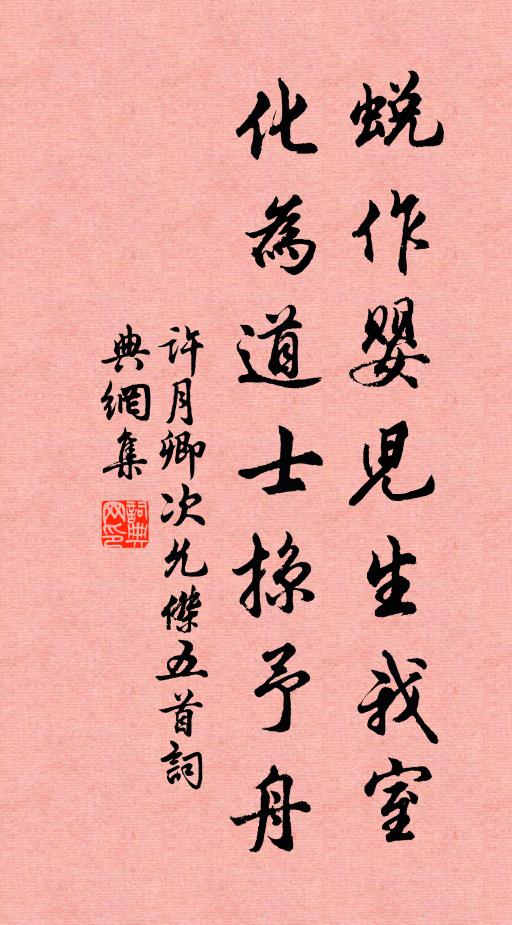 蛻作嬰児生我室
化為道士掠予舟
許月卿次允傑五首詞
典網集
詞典網印